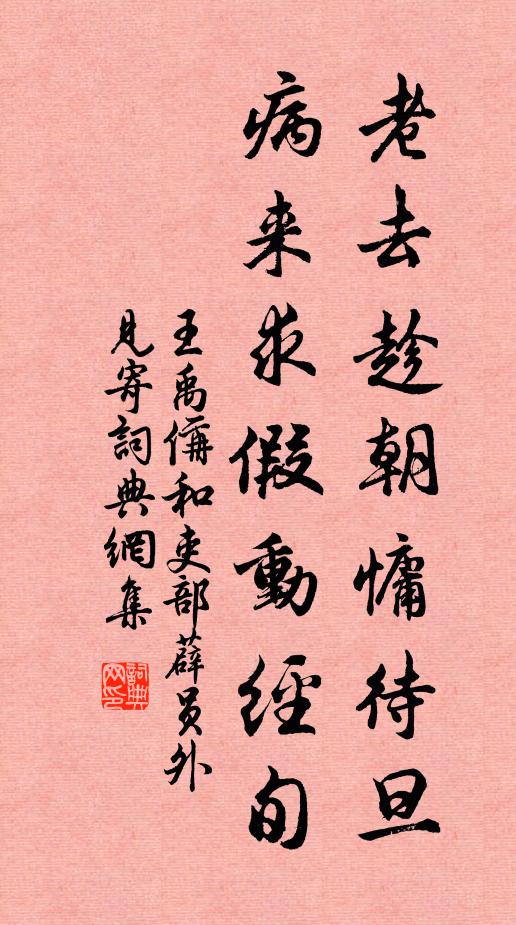 老去趁朝慵待旦
病来求假動經旬
王禹偁和吏部薛员外
見寄詞典網集
詞典
网印